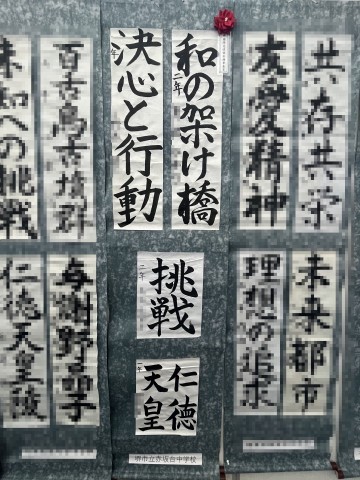 共存共栄
友愛精神
和の架け橋
二年
決心と行動
年
百舌鳥古墳群
未知への挑戦
未来都市
理想の追求
挑戦
二年
仁徳
天皇
一年
与謝野晶子
仁徳天皇陵
堺市立赤坂台中学校